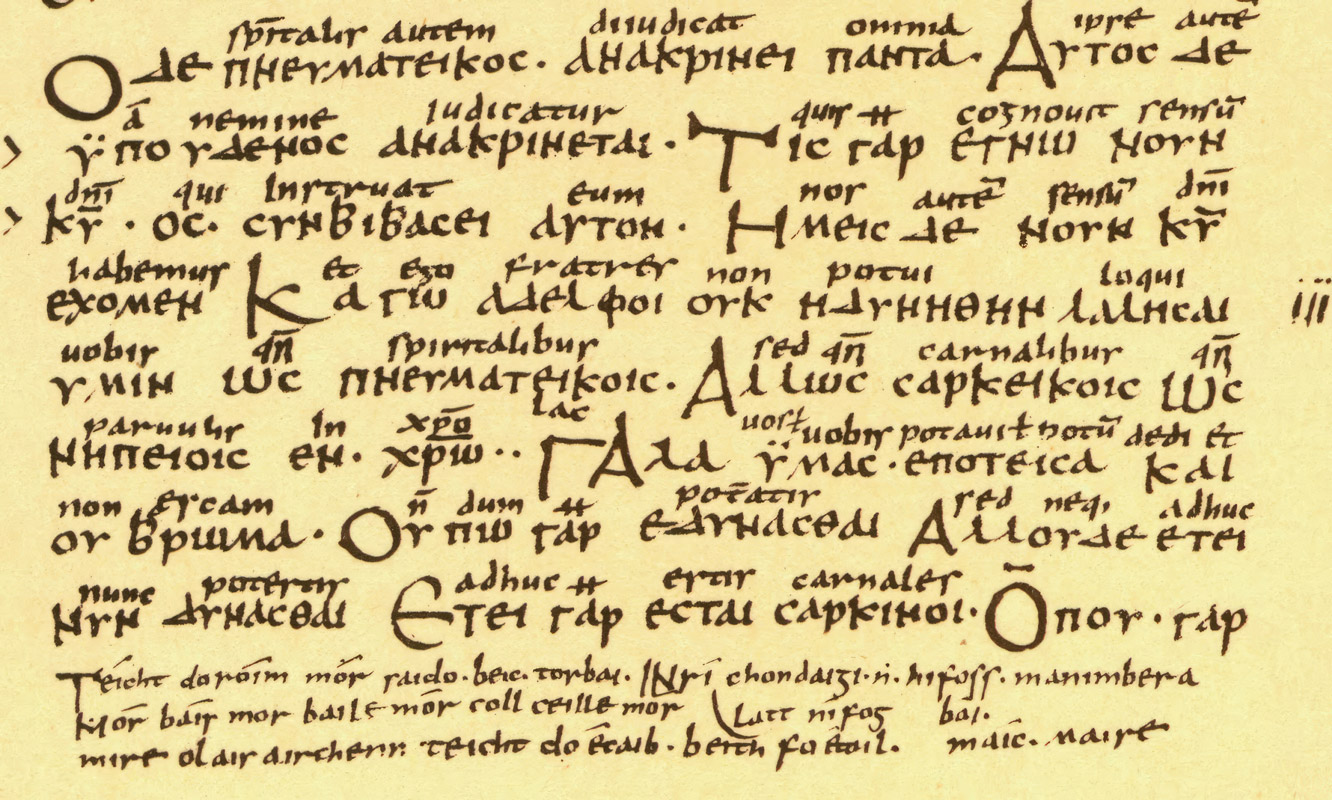 sp̅italis autem diiudicat omnia ipse aute̅
Ο ΔΕ ΠΝΕΥΜΑΤΕΙΚΟC· ΑΝΑΚΡΙΝΕΙ ΠΑΝΤΑ· ΑΥΤΟC ΔΕ
a̅ nemine Iudicatur quis ++ cognouit sensu̅
ΫΠΟΥΔΕΝΟC ΑΝΑΚΡΙΝΕΤΑΙ· ΤΙC ΓΑΡ ΕΓΝΩ ΝΟΥΝ
dn̅i qui Instruat eum nos aute̅ sensu̅ dn̅i
ΚΥ̅· ΟC· CΥΝΒΙΒΑCΕΙ ΑΥΤΟΝ· ΗΜΕΙC ΔΕ ΝΟΥΝ ΚΥ̅
habemus et ego fratres non potui loqui
ΕΧΟΜΕΝ ΚΑΓΩ ΑΔΕΛΦΟΙ ΟΥΚ ΗΔΥΝΗΘΗΝ ΛΑΛΗCΑΙ iii
uobis qn̅ spiritalibus sed qn̅ carnalibus qn̅
ΥΜΙΝ ΩC ΠΝΕΥΜΑΤΕΙΚΟΙC· ΑΛΛΩC CΑΡΚΕΙΚΟΙC ΩC
paruulis In xp̅o lac uos ł uobis potaui ł potu̅ dedi et
ΝΗΠΕΙΟΙC ΕΝ· ΧΡΩ̅·· ΓΑΛΑ ΫΜΑC· ΕΠΟΤΕΙCΑ ΚΑΙ
non escam n̅ dum ++ pot̅atis sed neq, adhuc
ΟΥ ΒΡΩΜΑ· ΟΥΠΩ ΓΑΡ ΕΔΥΝΑCΘΑΙ ΑΛΛΟΥΔΕ ΕΤΕΙ
nunc potestis adhuc ++ estis carnales
ΝΥΝ ΔΥΝΑCΘΑΙ ΕΤΕΙ ΓΑΡ ΕCΤΑΙ CΑΡΚΙΝΟΙ· Ο̅ΠΟΥ· ΓΑΡ
Téicht doróim mór saido· beic· torbai· INrí chondaigi·n· hifoss· manimbera
Mór báis mor baile mór coll ceille mór latt nifog bai·
mire olais airchenn teicht do écaib· beith fo étoil· maíc· maire